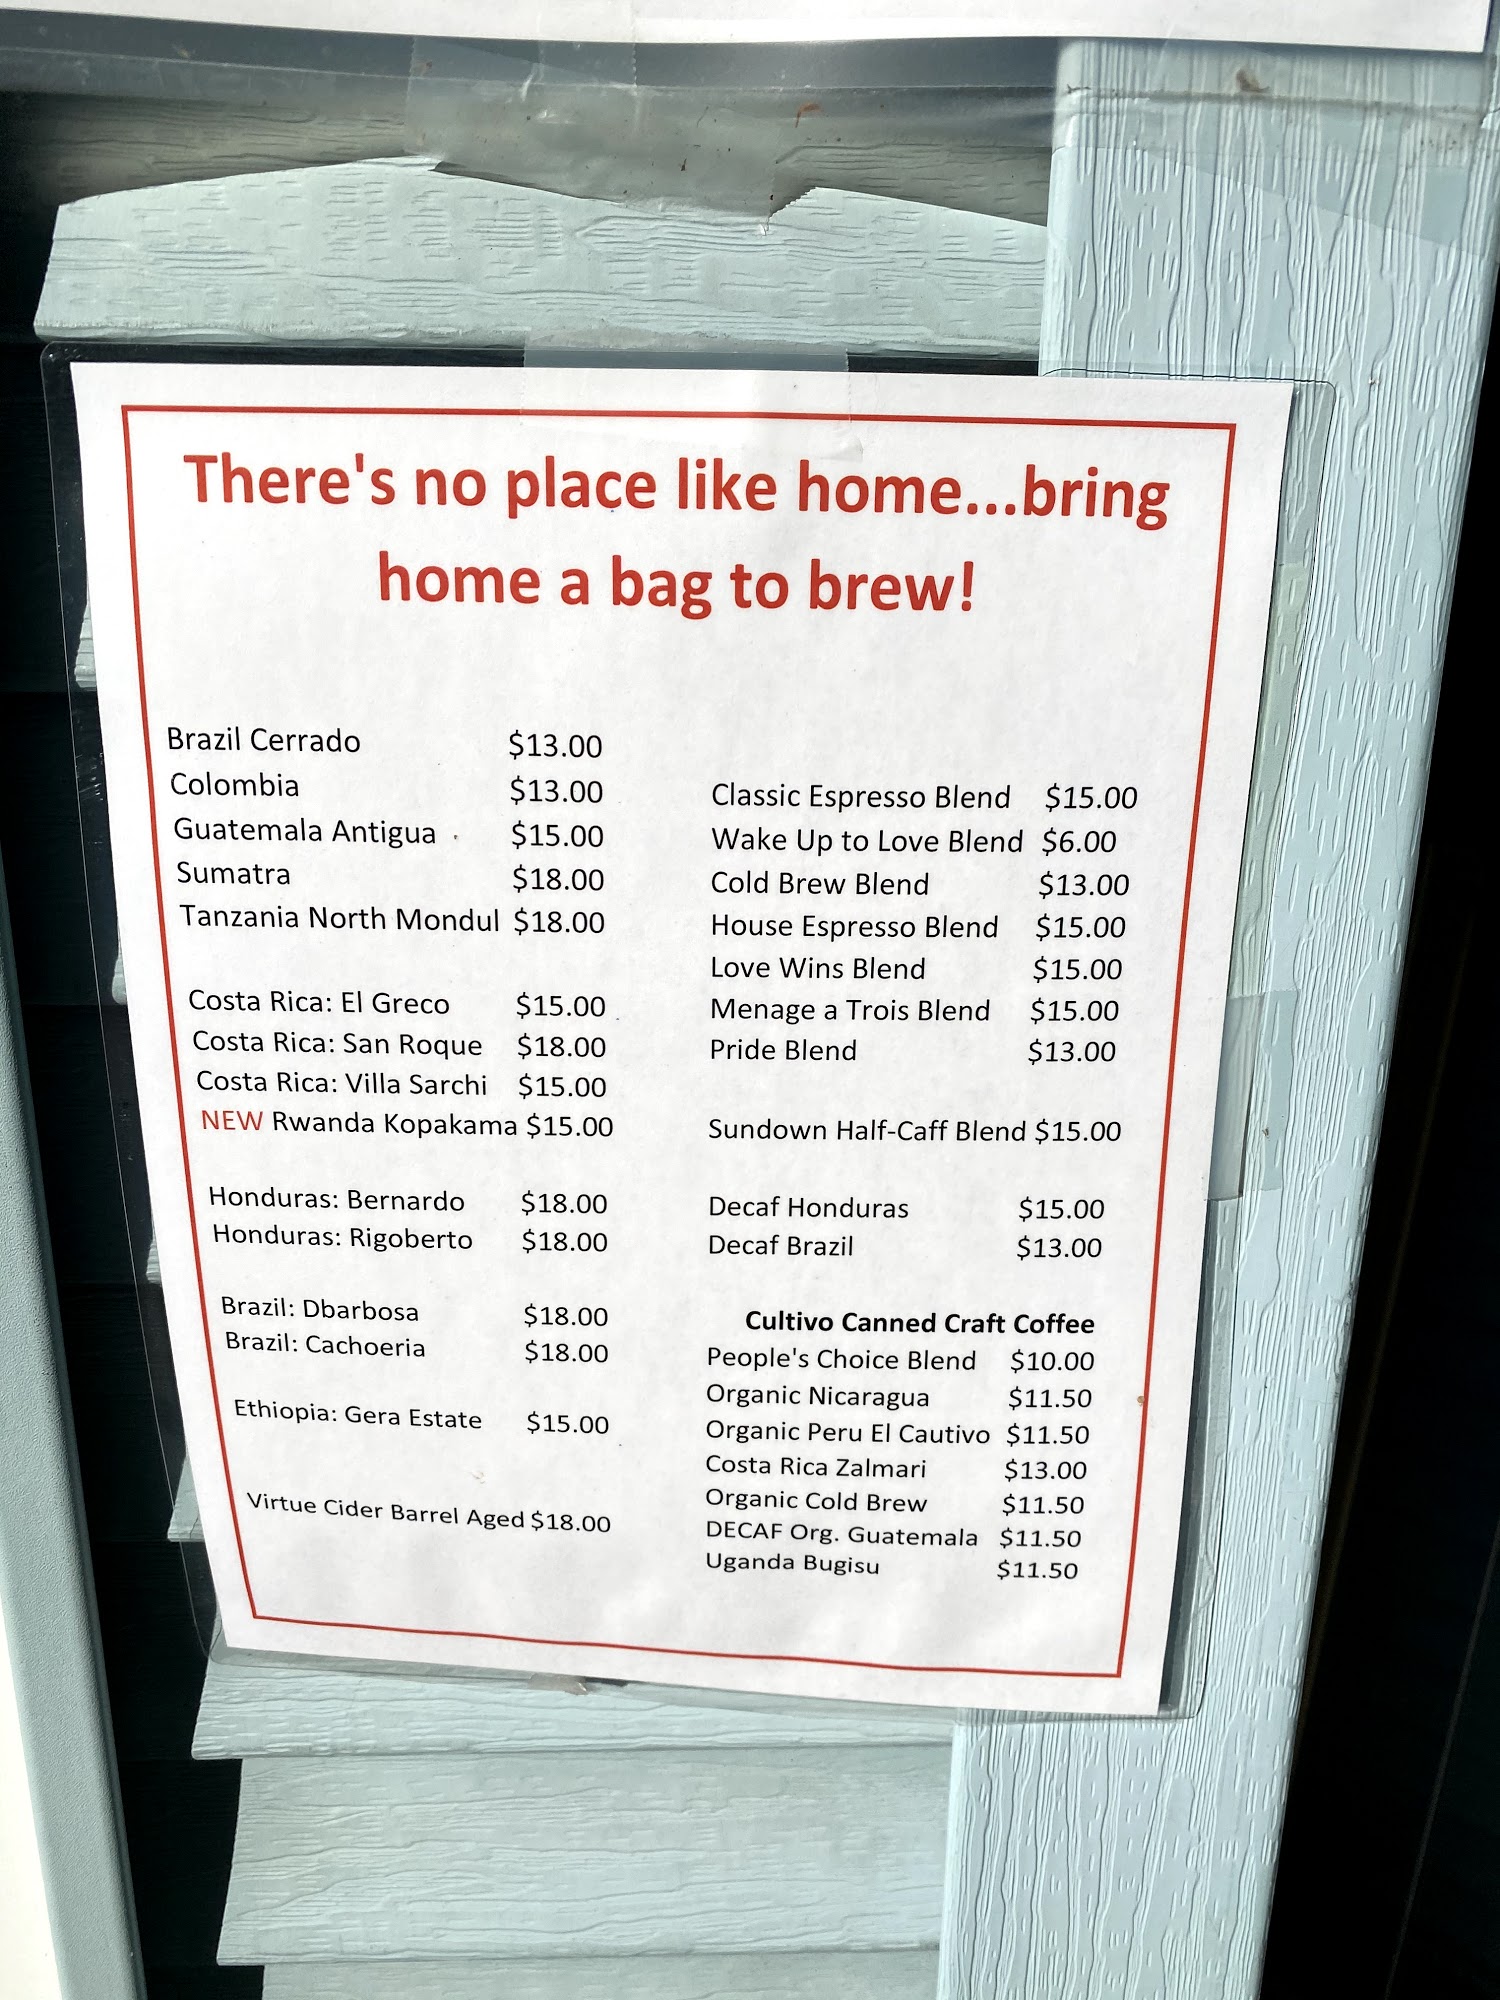 There's no place like home...bring
home a bag to brew!
Brazil Cerrado $13.00
Colombia $13.00
Guatemala Antigua $15.00
Sumatra $18.00
Tanzania North Mondul $18.00
Costa Rica: El Greco $15.00
Costa Rica: San Roque $18.00
Costa Rica: Villa Sarchi $15.00
NEW Rwanda Kopakama $15.00
Honduras: Bernardo $18.00
Honduras: Rigoberto $18.00
Brazil: Dbarbosa $18.00
Brazil: Cachoeria $18.00
Ethiopia: Gera Estate $15.00
Virtue Cider Barrel Aged $18.00
Classic Espresso Blend $15.00
Wake Up to Love Blend $6.00
Cold Brew Blend $13.00
House Espresso Blend $15.00
Love Wins Blend $15.00
Menage a Trois Blend $15.00
Pride Blend $13.00
Sundown Half-Caff Blend $15.00
Decaf Honduras $15.00
Decaf Brazil $13.00
Cultivo Canned Craft Coffee
People's Choice Blend $10.00
Organic Nicaragua $11.50
Organic Peru El Cautivo $11.50
Costa Rica Zalmari $13.00
Organic Cold Brew $11.50
DECAF Org. Guatemala $11.50
Uganda Bugisu $11.50